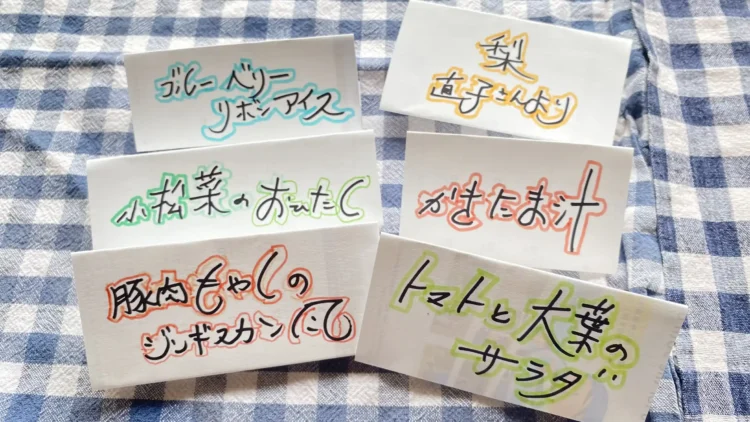 ブルーベリー
リボンアイス
梨
直子さんより
小松菜のおひたし
かきたま汁
豚肉もやしの
ジンギスカン
トマトと大葉の
サラダ